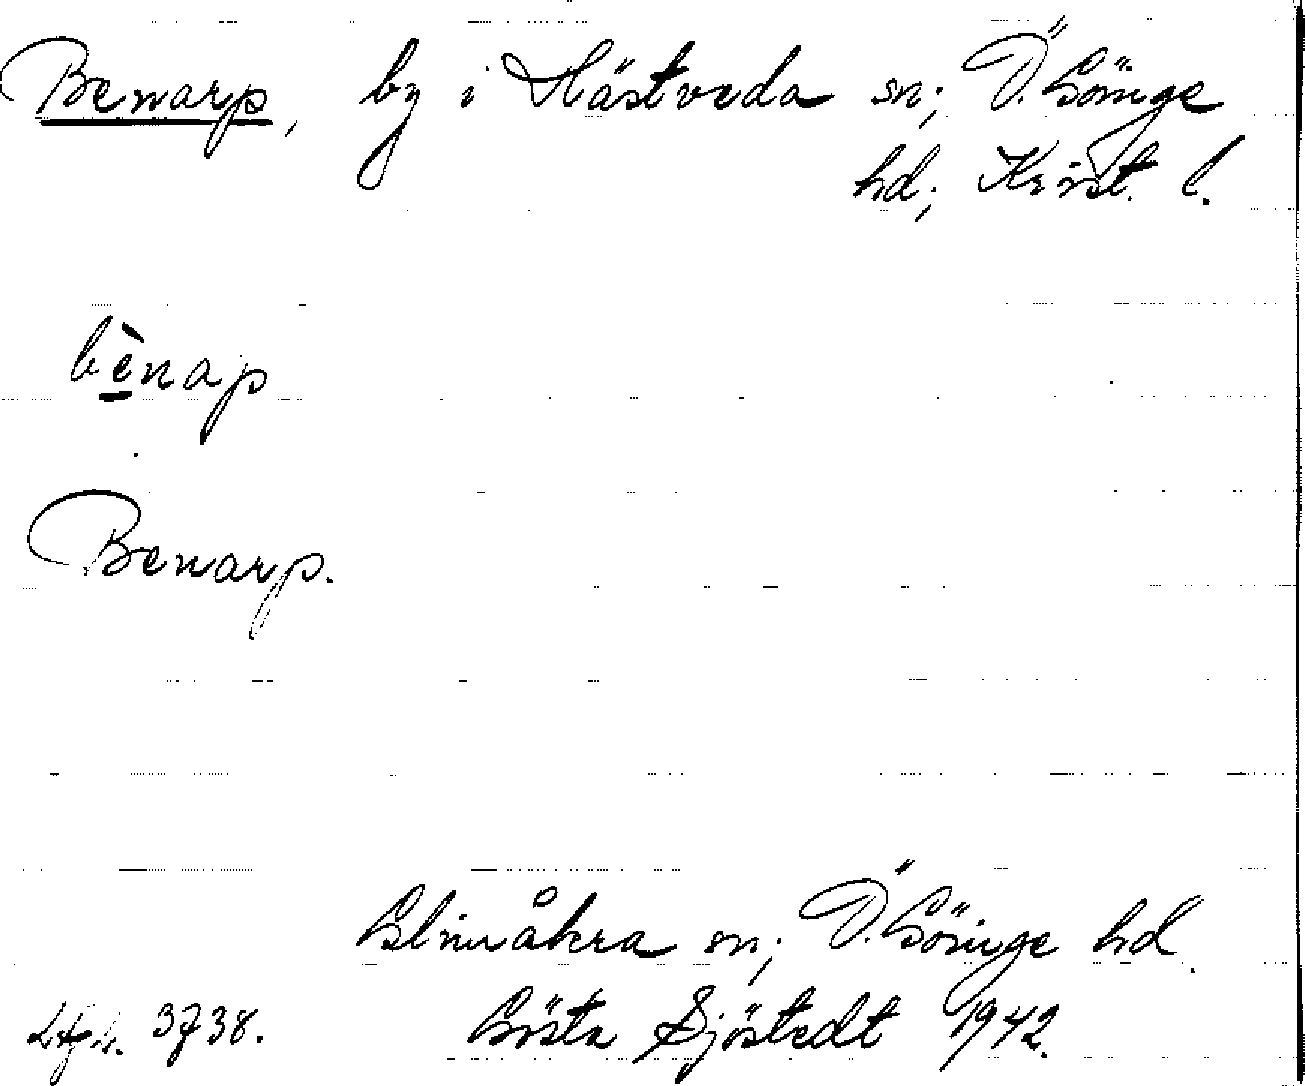 Benarp, by i Hästveda sn; Ö. Göinge
hd; Krist. l.
bènap
Benarp.
Glimåkra sn; Ö. Göinge hd.
3738. Gösta Sjöstedt 1942.